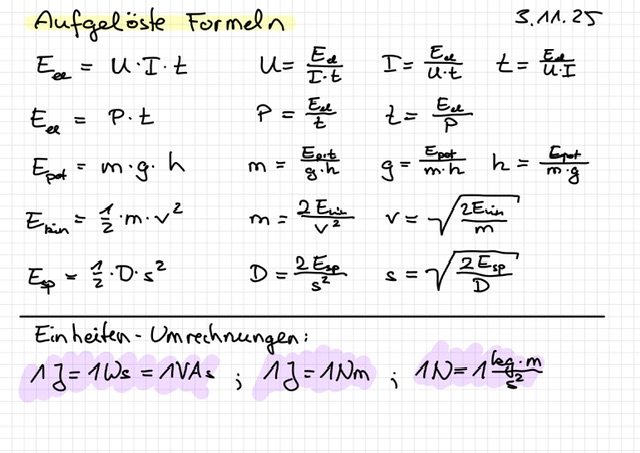 Aufgelöste Formeln 3.11.25
E_el = U · I · t U = E_el/(I · t) I = E_el/(U · t) t = E_el/(U · I)
E_el = P · t P = E_el/t t = E_el/P
E_pot = m · g · h m = E_pot/(g · h) g = E_pot/(m · h) h = E_pot/(m · g)
E_kin = 1/2 · m · v² m = 2E_kin/v² v = √(2E_kin/m)
E_sp = 1/2 · D · s² D = 2E_sp/s² s = √(2E_sp/D)
Einheiten-Umrechnungen:
1 J = 1Ws = 1VAs ; 1 J = 1Nm ; 1N = 1 kg·m/s²